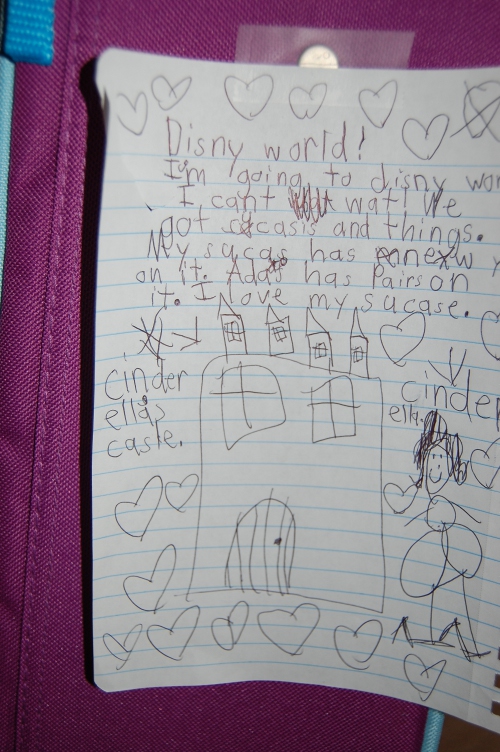 Disny world!
I'm going to disny wor
I can't wat! We
got sucasis and things.
My sucas has
on it. Adas has Pairs on
it. I love my sucase.
cinder
ella's
casle.
cinder
ella.